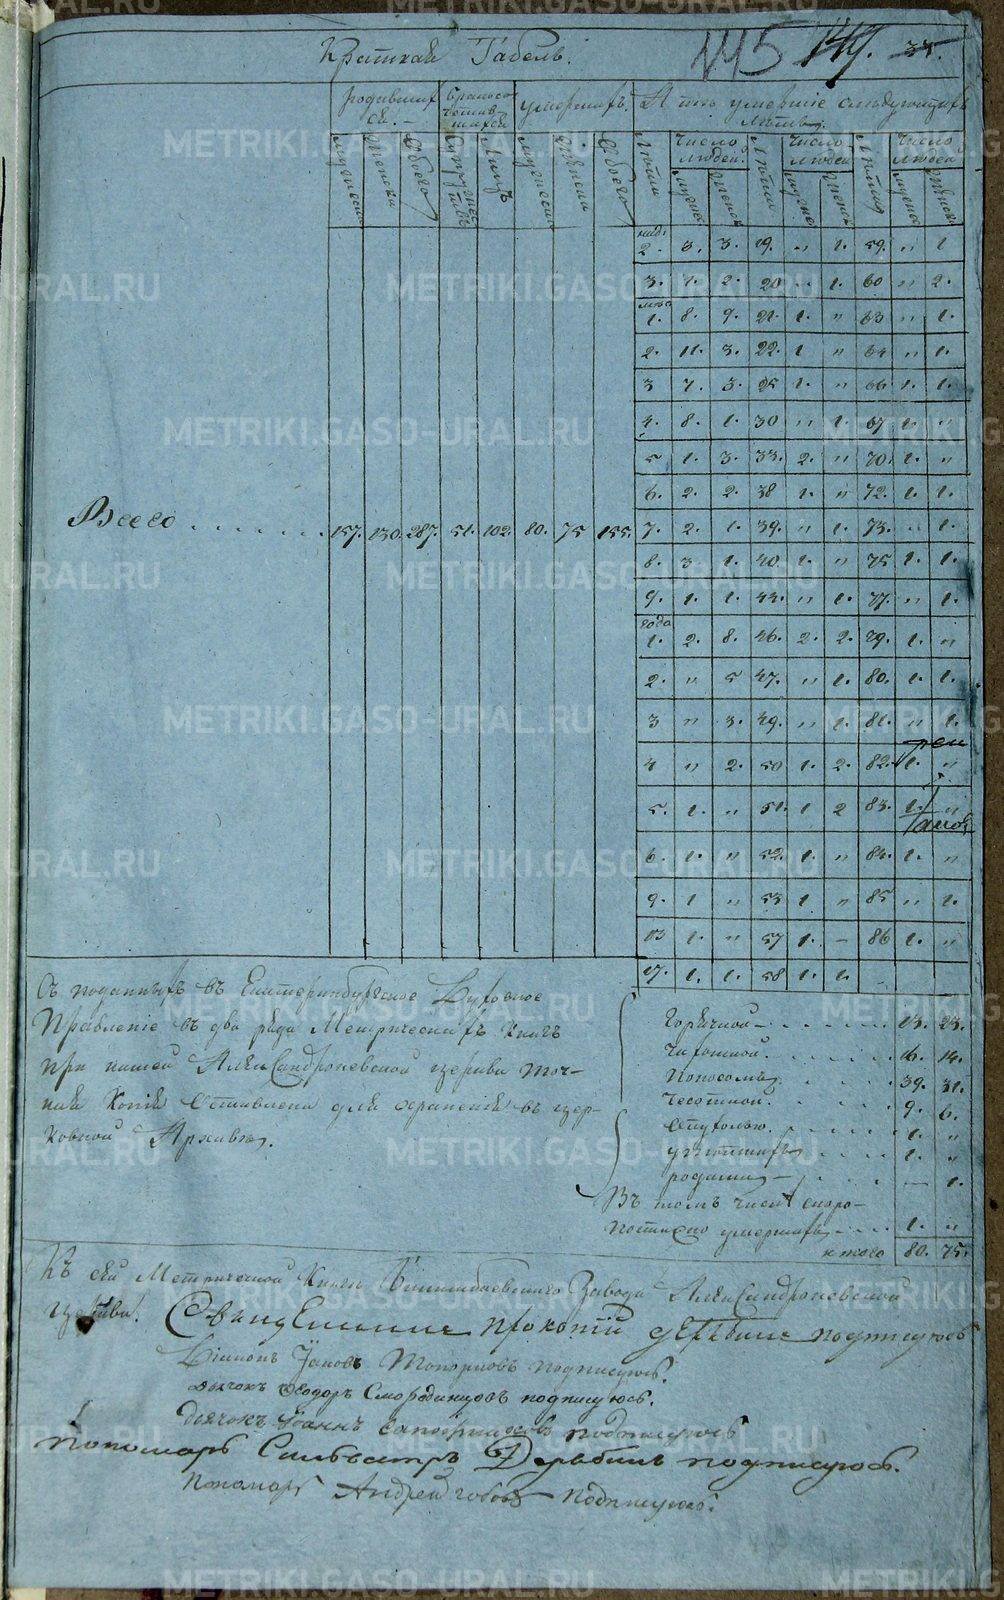 Краткая Табель.
145 149. 34.
родившихся.
бракосочетавшихся
умершихъ.
А изъ умершіе слѣдующихъ лѣтъ.
мужеска
женска
обоего
супружествъ
лицъ
мужеска
женска
обоего
Лѣта
Число людей
Лѣта
Число людей
Лѣта
Число людей
мужеска женска мужеска женска мужеска женска
нед:
2. 3. 3. 19. " 1. 59. " 1
3. 1. 2. 20 " 1. 60 " 2.
мѣс
1. 8. 9. 21. 1. " 63 " 1.
2. 11. 3. 22. 1 " 64 " 1.
3 7. 3. 25 1. " 66 1. 1.
4. 8. 1. 30 " 1. 67 1. "
5 1. 3. 33. 2. " 70. 1. "
6. 2. 2. 38 1. " 72. 1. 1.
Всего 157. 130. 287. 51. 102. 80. 75 155.
7. 2. 1. 39. " 1. 73. " 1.
8. 3 1. 40. 1. " 75 1. 1.
9. 1. 1. 44. " 1. 77. " 1.
года
1. 2. 8. 46. 2. 2. 79. 1. "
2. " 5 47. " 1. 80. 1. 1.
3 " 3. 49. " 1. 81. " 1.
4 " 2. 50 1. 2. 82. 1. "
5. 1. " 51. 1 2 83. 1. "
6. 1. " 52. 1. " 84. 1. "
9. 1 " 53 1 " 85 " 1.
13 1. " 57 1. - 86 1. "
17. 1. 1. 58 1. 1.
Съ поданныхъ въ Екатеринбургское Духовное
Правленіе въ два ряда Метрическихъ Книгъ
при нашей Александроневской церкви точ-
ныя Копіи оставлены для храненія въ цер-
ковной Архивѣ.
Горячкой 23.
Чахоткой. 6. 14.
Поносомъ 39. 31.
9. 6.
1. "
1. "
родами - 1.
Въ томъ числѣ скоро-
постижно умершихъ 1. "
итого 80. 75.
Къ сей Метрической Книгѣ Билимбаевскаго Завода Александроневской
церкви: Священникъ Прокопій подписуюсь
Діаконъ Іаковъ Топорковъ подписуюсь.
Дьячокъ Ѳеодоръ Смородинцовъ подписуюсь.
Дьячокъ Іоаннъ подписуюсь
Пономарь Сильвестръ Дерябинъ подписуюсь.
Пономарь Андрей подписуюсь.
METRIKI.GASO-URAL.RU